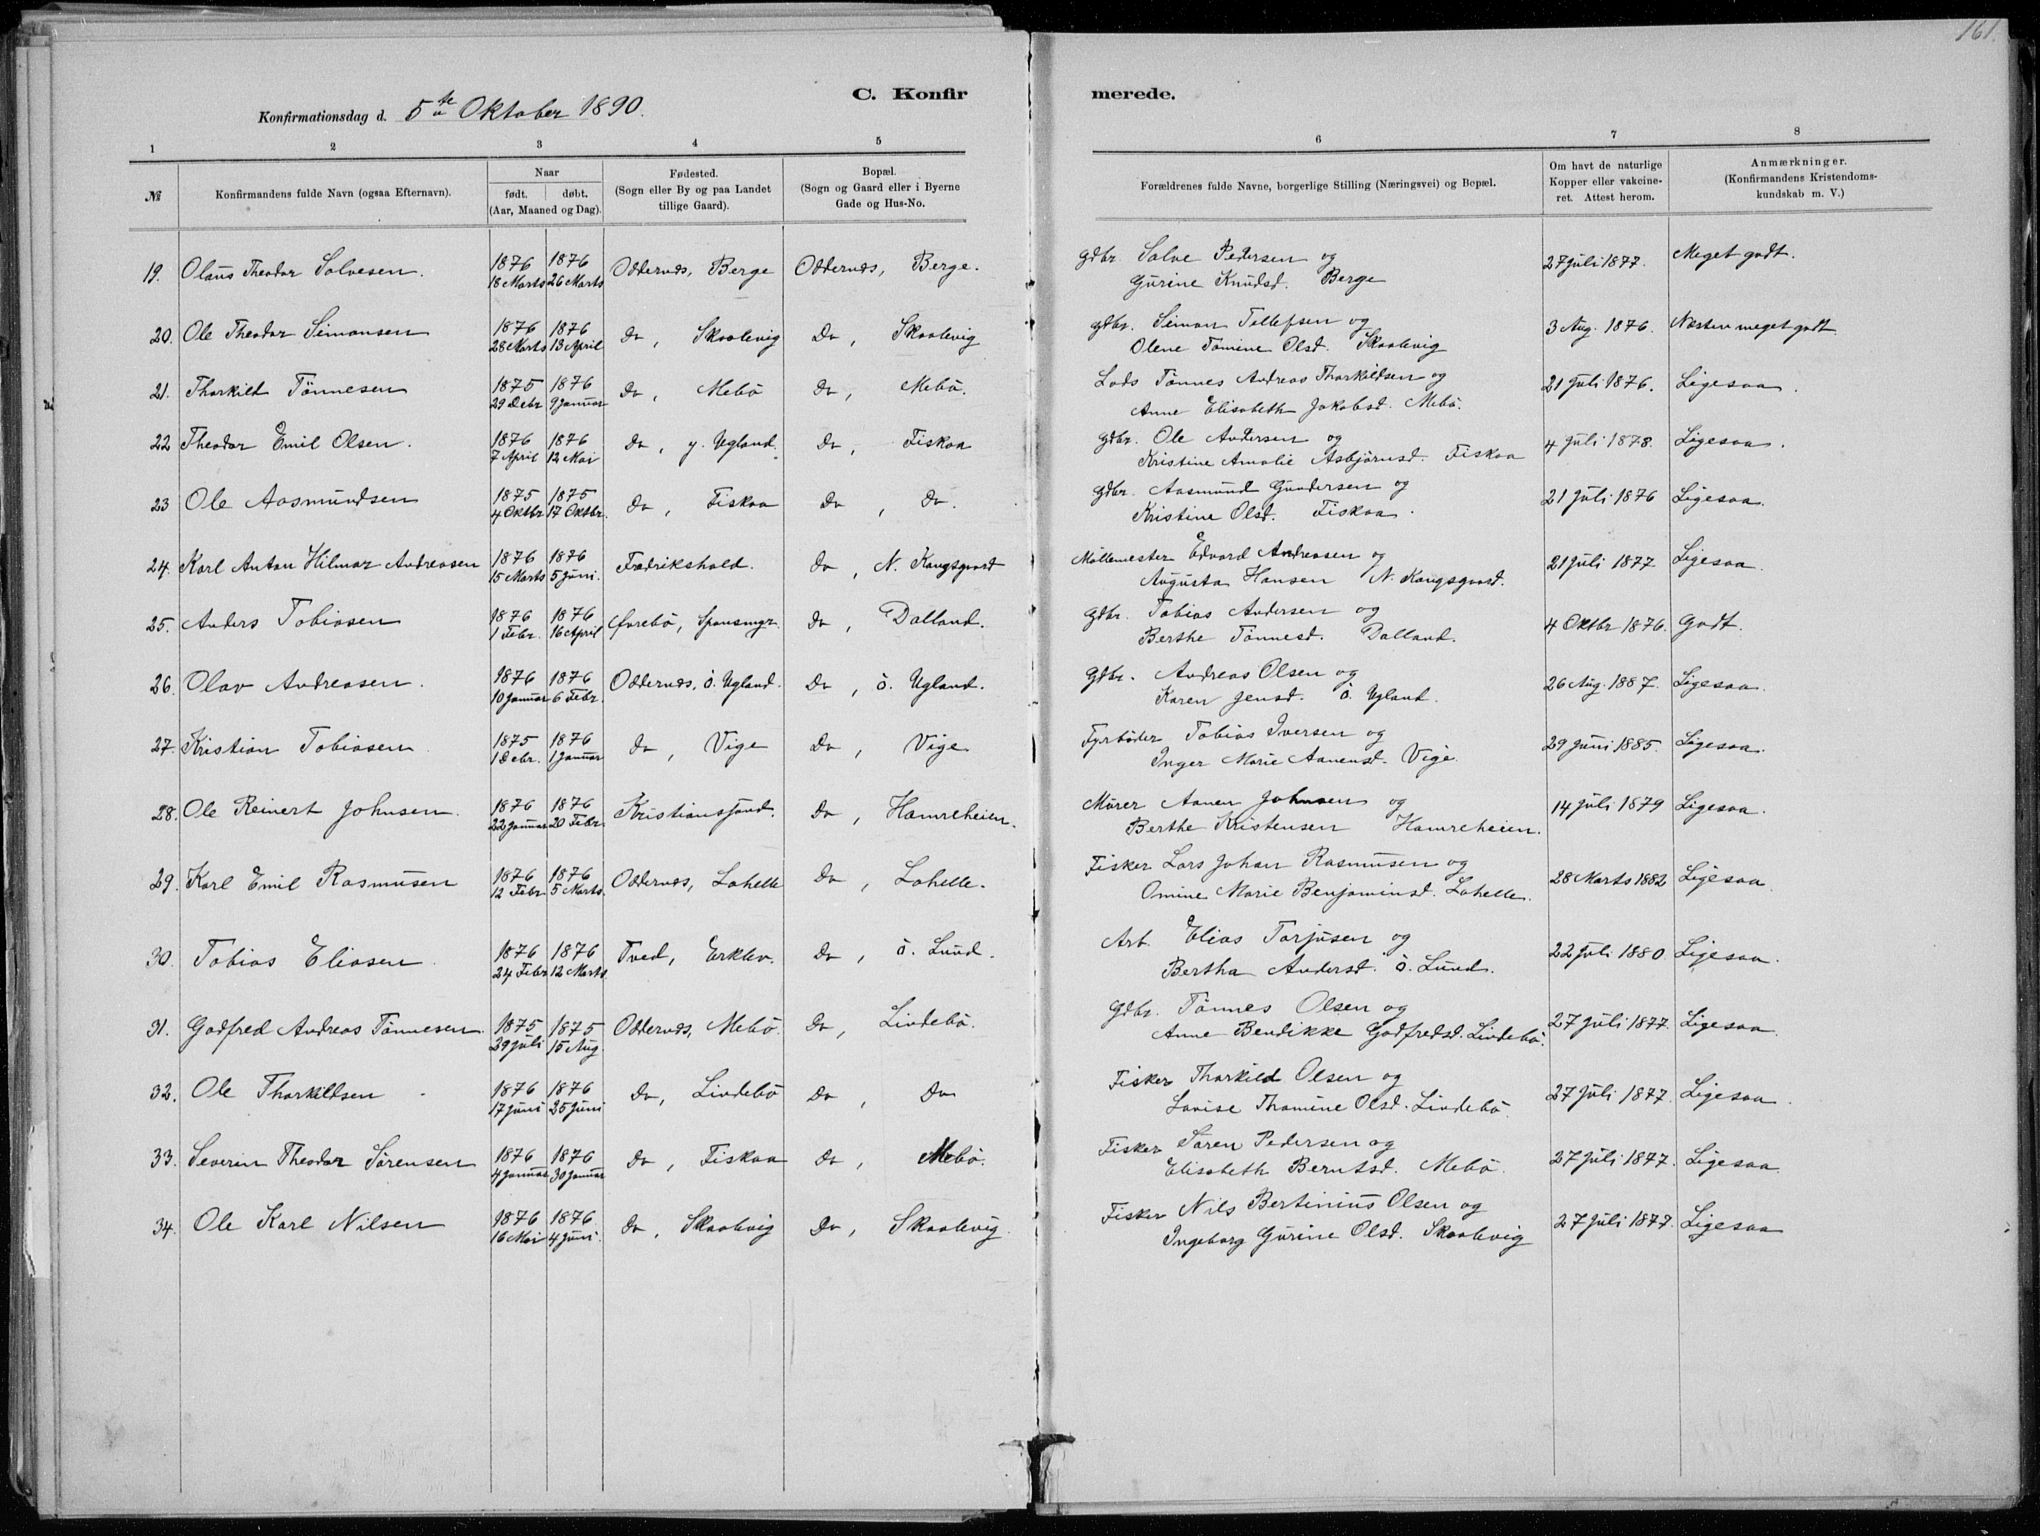 161.
C. Konfirmerede.
Konfirmationsdag d. 5te Oktober 1890.
1 2 3 4 5 6 7 8
№ | Konfirmandens fulde Navn (ogsaa Efternavn). | Naar født. døbt. (Aar, Maaned og Dag). | Fødested. (Sogn eller By og paa Landet tillige Gaard). | Bopæl. (Sogn og Gaard eller i Byerne Gade og Hus-No. | Forældrenes fulde Navne, borgerlige Stilling (Næringsvei) og Bopæl. | Om havt de naturlige Kopper eller vakcineret. Attest herom. | Anmærkninger. (Konfirmandens Kristendomskundskab m. V.)
19. Olaus Theodor Salvesen. | 1876 18 Marts | 1876 26 Marts | Oddernæs, Berge | Oddernæs, Berge. | Gdbr. Salve Pedersen og Gurine Knudsd. Berge | 27 Juli 1877. | Meget godt.
20. Ole Theodor Simonsen | 1876 28 Marts | 1876 13 April | Do, Skaalevig | Do, Skaalevig | Gdbr. Simon Tellefsen og Olene Tomine Olsd. Skaalevig | 3 Aug. 1876. | Næsten meget godt
21. Thorkild Tönnesen | 1875 29 Debr | 1876 9 Januar | Do, Mebö | Do, Mebö. | Lods Tönnes Andreas Thorkildsen og Anne Elisabeth Jakobsd. Mebö. | 21 Juli 1876. | Ligesaa.
22 Theodor Emil Olsen. | 1876 7 April | 1876 12 Mai | Do, y. Ugland. | Do, Fiskaa | Gdbr. Ole Andersen og Kristine Amalie Asbjörnsd. Fiskaa | 4 Juli 1878. | Ligesaa.
23 Ole Aasmundsen | 1875 4 Oktbr | 1875 17 Oktbr. | Do, Fiskaa | Do, Do. | Gdbr. Aasmund Gundersen og Kristine Olsd. Fiskaa. | 21 Juli 1876 | Ligesaa.
24. Karl Anton Hilmar Andreasen | 1876 15 Marts | 1876 5 Juni. | Fredrikshald. | Do, N. Kongsgaard | Möllemester Edvard Andreasen og Augusta Hansen N. Kongsgaard. | 21 Juli 1877 | Ligesaa.
25. Anders Tobiasen | 1876 1 Febr. | 1876 16 April | Øvrebö, | Do, Dalland. | Gdbr. Tobias Andersen og Berthe Tönnesd. Dalland. | 4 Oktbr 1876. | Godt.
26. Olav Andreasen. | 1876 10 Januar | 1876 6 Febr. | Oddernæs, ö. Ugland. | Do, ö. Ugland. | Gdbr. Andreas Olsen og Karen Jensd. ö. Ugland. | 26 Aug. 1887. | Ligesaa.
27. Kristian Tobiasen | 1875 1 Debr. | 1876 1 Januar | Do, Vige | Do, Vige | Fyrböder Tobias Iversen og Inger Marie Aanensd. Vige. | 29 Juni 1885. | Ligesaa.
28. Ole Reinert Johnsen. | 1876 22 Januar | 1876 20 Febr. | Kristianssand. | Do, Hamreheien. | Murer Aanen Johnsen og Berthe Kristensen Hamreheien. | 14 Juli 1879 | Ligesaa.
29. Karl Emil Rasmusen | 1876 12 Febr | 1876 5 Marts. | Oddernæs, Lahelle | Do, Lahelle. | Fisker Lars Johan Rasmusen og Omine Marie Benjaminsd. Lahelle. | 28 Marts 1882 | Ligesaa.
30. Tobias Eliasen. | 1876 24 Febr | 1876 12 Marts | Tved, Erklev. | Do, ö. Lund. | Arb. Elias Torjusen og Bertha Andersd. ö. Lund. | 22 Juli 1880. | Ligesaa.
31. Godfred Andreas Tönnesen. | 1875 29 Juli | 1875 15 Aug. | Oddernæs, Mebö. | Do, Lindebö. | Gdbr. Tönnes Olsen og Anne Bendikke Godfredsd. Lindebö. | 27 Juli 1877. | Ligesaa.
32. Ole Thorkildsen | 1876 17 Juni | 1876 25 Juni | Do, Lindebö | Do, Do | Fisker Thorkild Olsen og Lovise Thomine Olsd. Lindebö. | 27 Juli 1877. | Ligesaa.
33. Severin Theodor Sörensen | 1876 4 Januar | 1876 30 Januar | Do, Fiskaa | Do, Mebö. | Fisker Sören Pedersen og Elisabeth Berntsd. Mebö. | 27 Juli 1877. | Ligesaa
34. Ole Karl Nilsen | 1876 16 Mai | 1876 4 Juni. | Do, Skaalevig | Do, Skaalevig. | Fisker Nils Bertinius Olsen og Ingeborg Gurine Olsd. Skaalevig | 27 Juli 1877. | Ligesaa